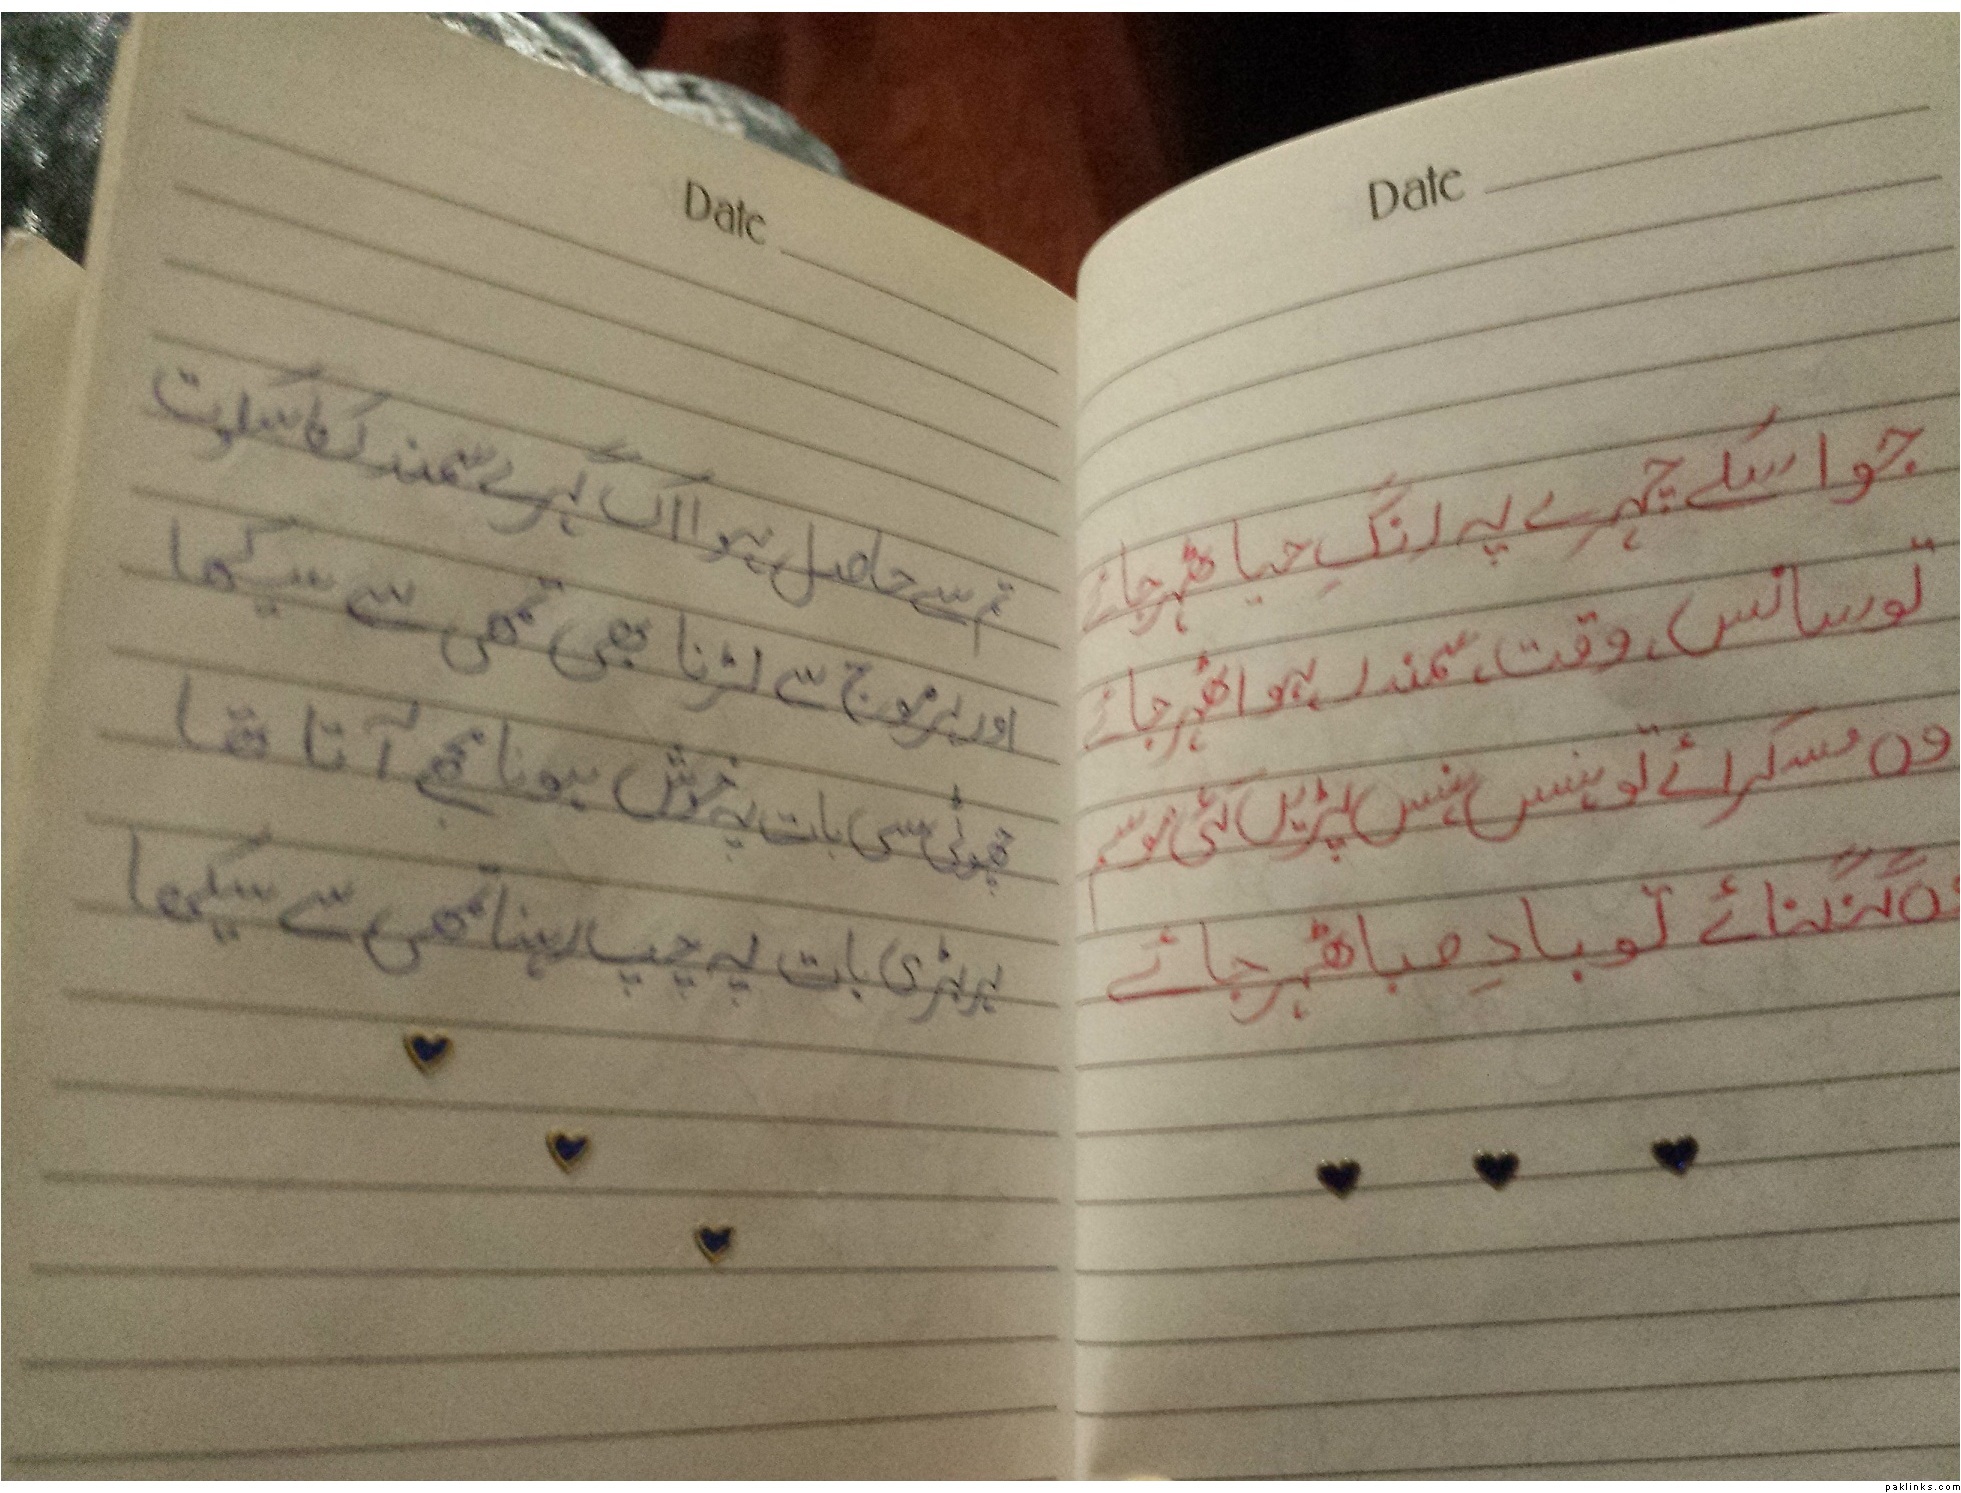 Date
جو اسکے چہرے پہ رنگِ حیا ٹھہر جائے
تو سانس، وقت، سمندر، ہوا ٹھہر جائے
وہ مسکرائے تو ہنس ہنس پڑیں کئی موسم
وہ گنگنائے تو بادِ صبا ٹھہر جائے
Date
تم سے حاصل ہوا اک گہرے سمندر کا سکوت
اور ہر موج سے لڑنا بھی تمھی سے سیکھا
چھوٹی سی بات پہ خوش ہونا مجھے آتا تھا
پر بڑی بات پہ چپ رہنا تمھی سے سیکھا
paklinks.com